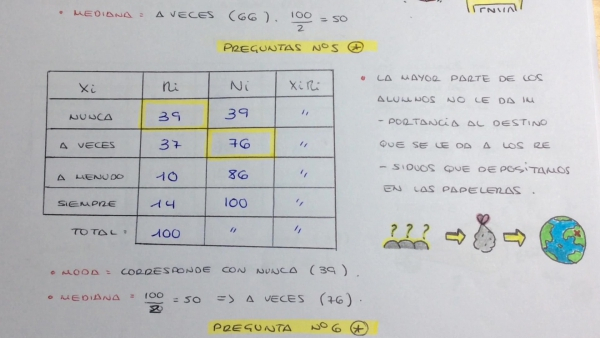 • MEDIANA = A VECES (66). 100/2 = 50
ENVIA
PREGUNTAS Nº5 *
Xi ni Ni Xini
NUNCA 39 39 "
A VECES 37 76 "
A MENUDO 10 86 "
SIEMPRE 14 100 "
TOTAL = 100 " "
• LA MAYOR PARTE DE LOS
ALUMNOS NO LE DA IM
- PORTANCIA AL DESTINO
QUE SE LE DA A LOS RE
- SIDUOS QUE DEPOSITAMOS
EN LAS PAPELERAS.
? ? ?
• MODA = CORRESPONDE CON NUNCA (39).
• MEDIANA = 100/2 = 50 => A VECES (76).
PREGUNTA Nº6 *